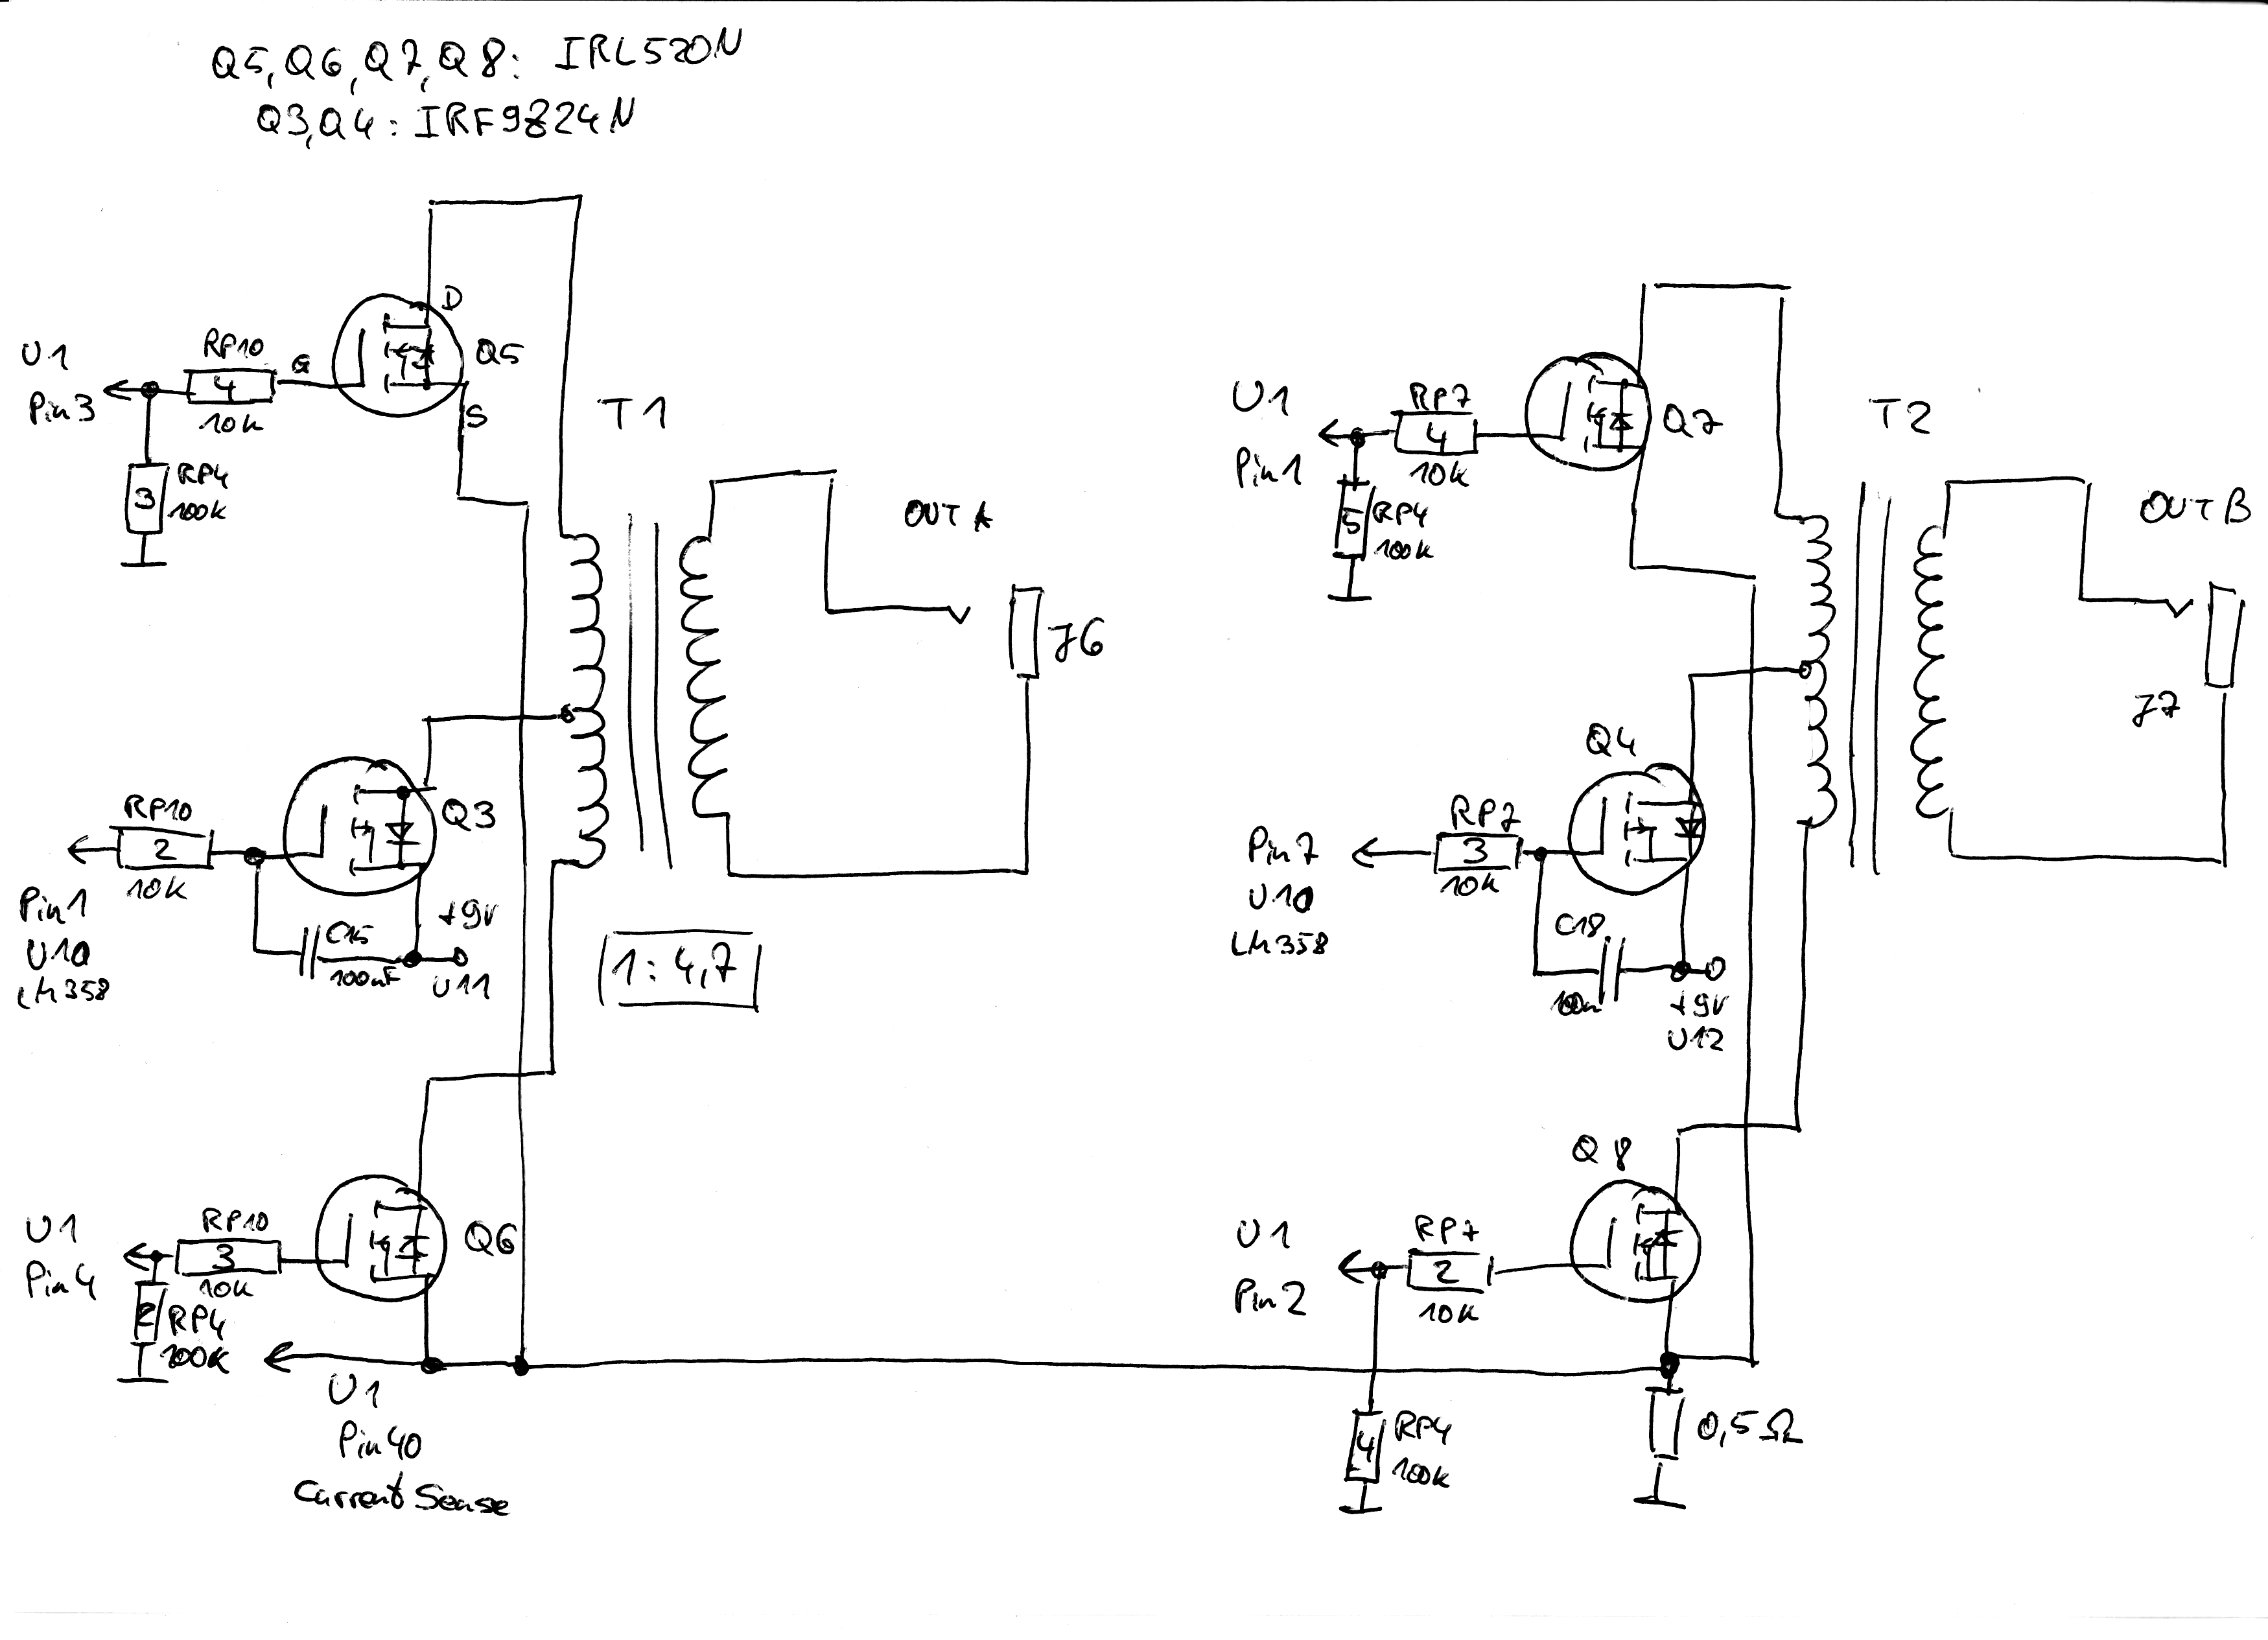 Q5,Q6,Q7,Q8: IRL520N
Q3,Q4: IRF9Z24N
D
RP10
G
Q5
U1
Pin3
4
10k
S
T1
3
RP4
100k
OUT A
J6
RP10
Q3
2
10k
Pin1
U10
LM358
C15
100nF
+9V
U11
1:4,7
U1
Pin4
RP10
3
10k
Q6
2
RP4
100K
U1
Pin40
Current Sense
U1
Pin1
RP7
4
10k
Q7
T2
5
RP4
100k
OUT B
J7
Q4
RP7
3
10k
Pin7
U10
LM358
C18
100n
+9V
U12
Q8
U1
Pin2
RP7
2
10k
4
RP4
100k
0,5Ω